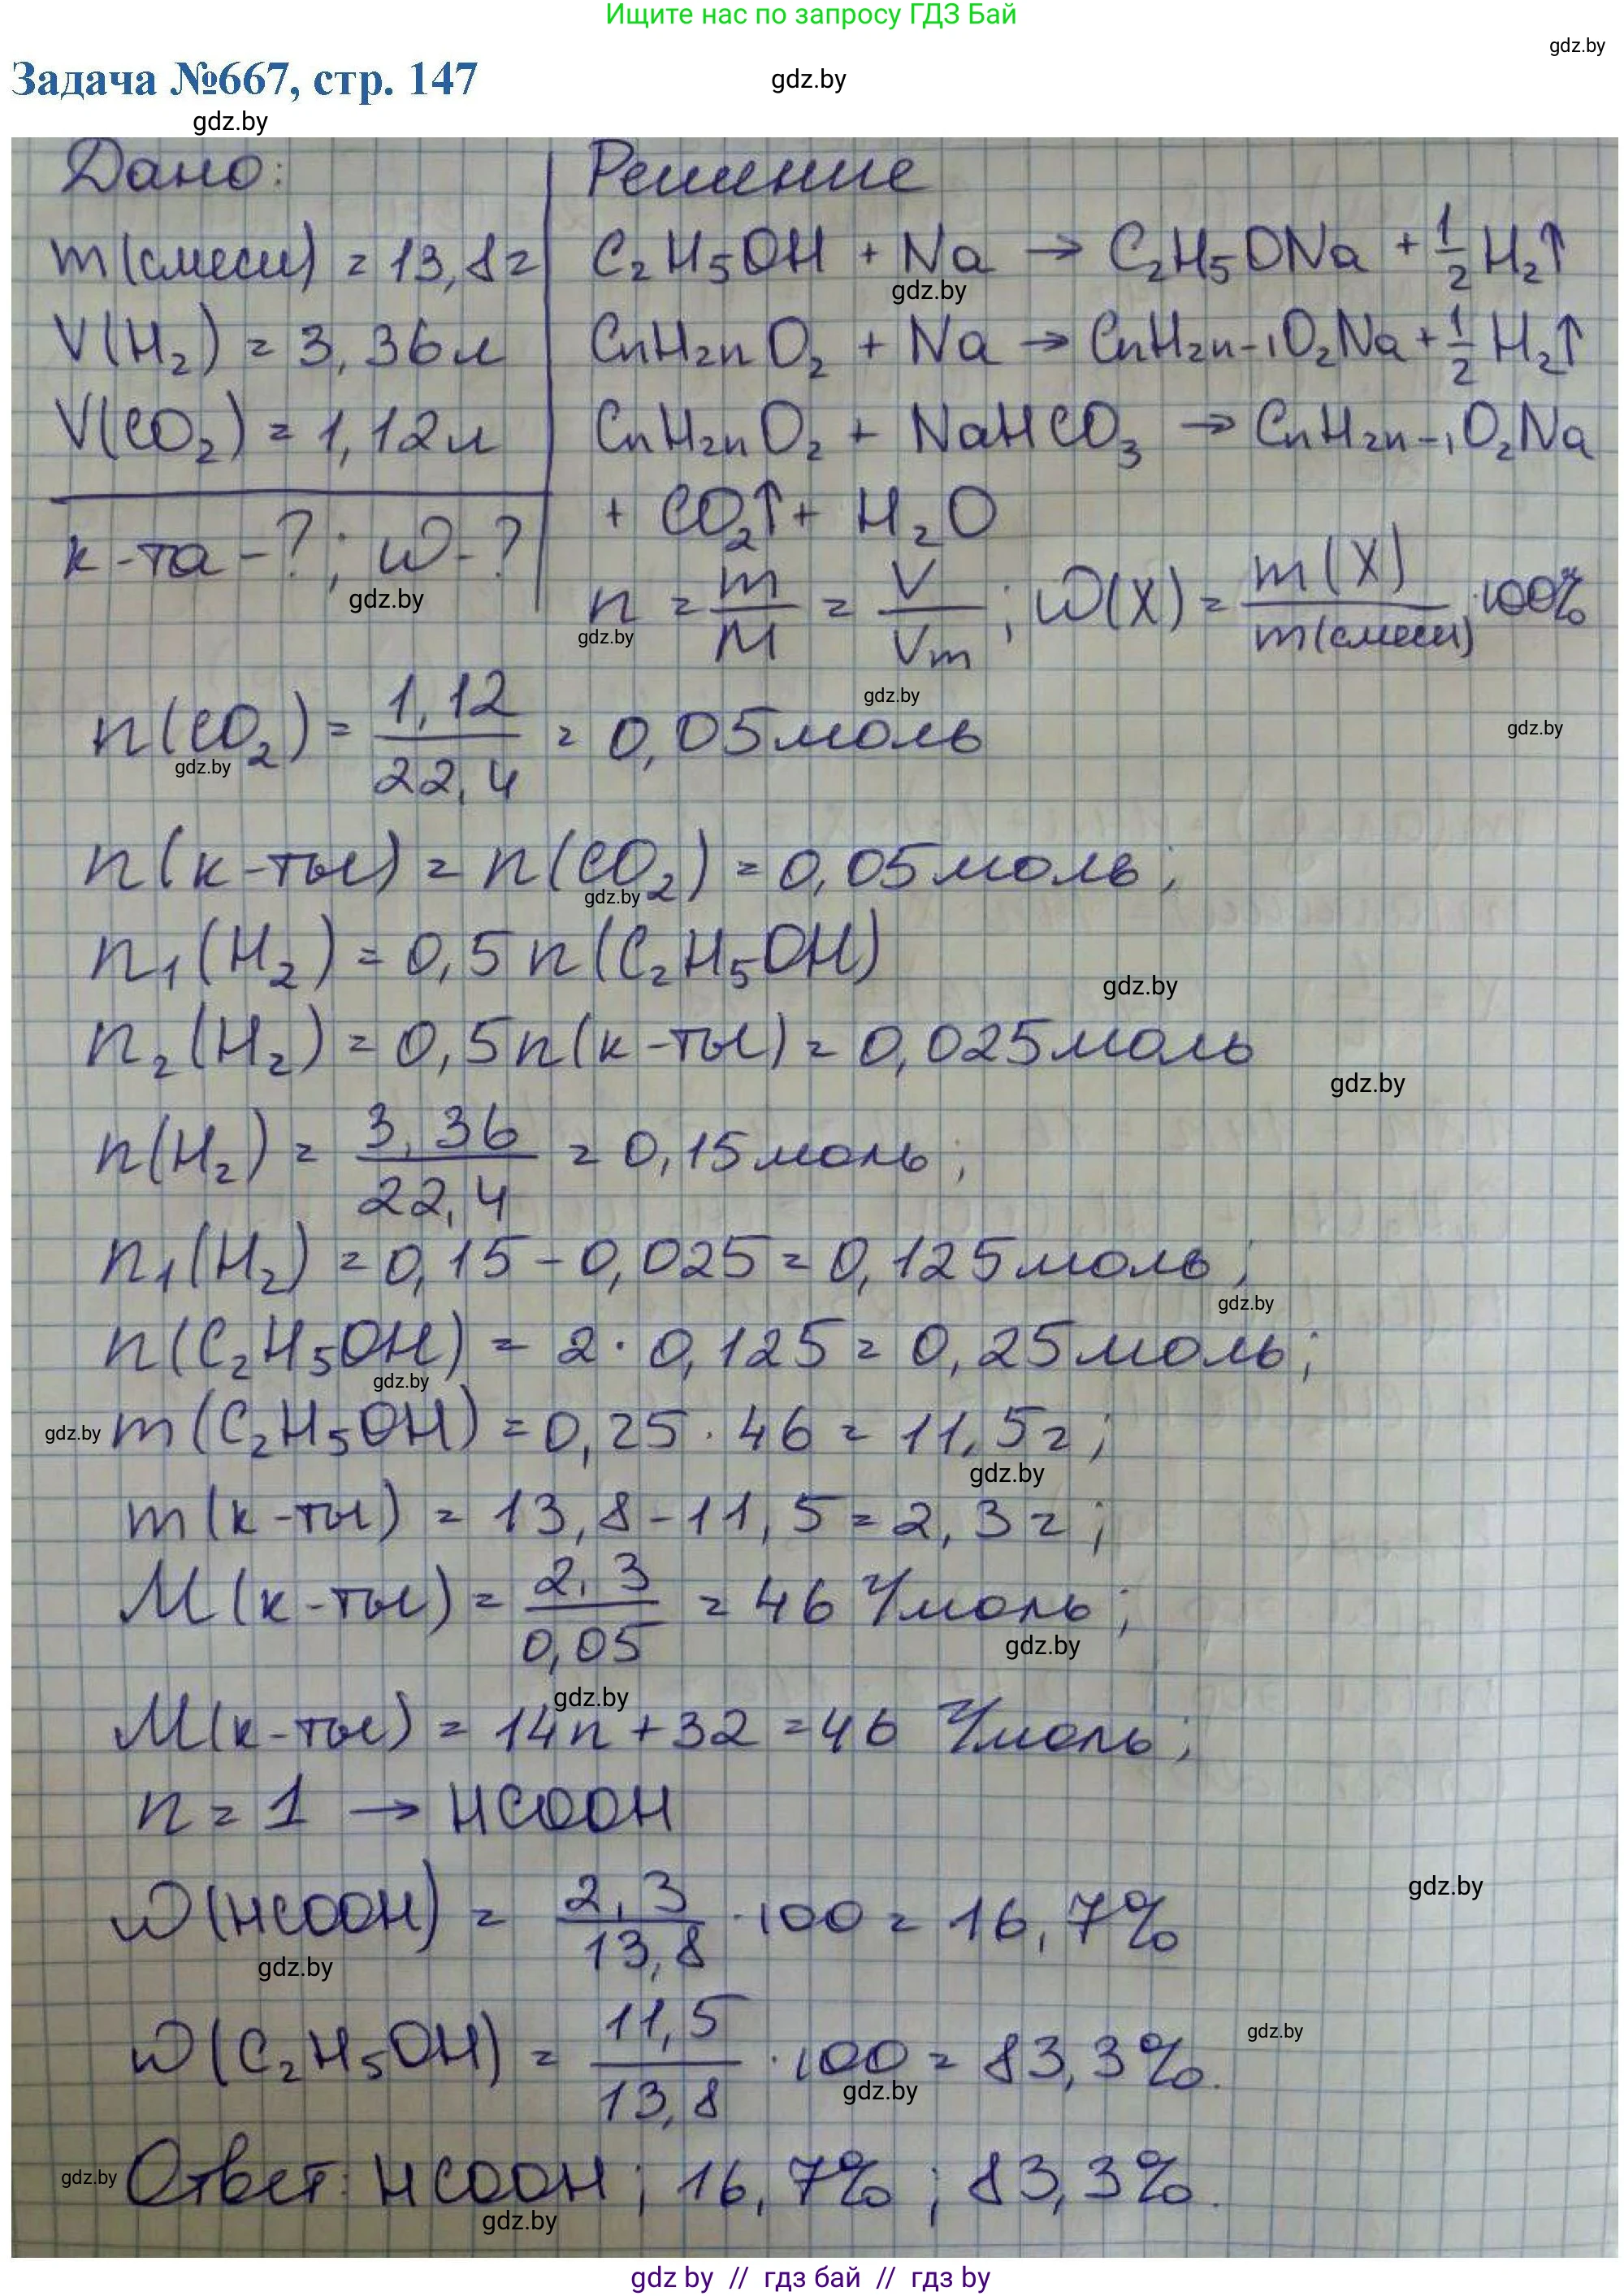 Ищите нас по запросу ГДЗ Бай
gdz.by
Задача №667, стр. 147
gdz.by
gdz.by
Дано:
m(смеси) = 13,8г
V(H₂) = 3,36л
V(CO₂) = 1,12л
к-та-?; ω-?
gdz.by
Решение
C₂H₅OH + Na → C₂H₅ONa + 1/2 H₂↑
gdz.by
CnH₂nO₂ + Na → CnH₂n-₁O₂Na + 1/2 H₂↑
CnH₂nO₂ + NaHCO₃ → CnH₂n-₁O₂Na
+ CO₂↑ + H₂O
n = m/M = V/Vm; ω(X) = m(X)/m(смеси) · 100%
gdz.by
gdz.by
n(CO₂) = 1,12/22,4 = 0,05моль
gdz.by
gdz.by
n(к-ты) = n(CO₂) = 0,05моль;
gdz.by
n₁(H₂) = 0,5n(C₂H₅OH)
gdz.by
n₂(H₂) = 0,5n(к-ты) = 0,025моль
gdz.by
n(H₂) = 3,36/22,4 = 0,15моль;
n₁(H₂) = 0,15-0,025 = 0,125моль;
gdz.by
n(C₂H₅OH) = 2·0,125 = 0,25моль;
gdz.by
gdz.by
m(C₂H₅OH) = 0,25·46 = 11,5г;
gdz.by
m(к-ты) = 13,8-11,5 = 2,3г;
M(к-ты) = 2,3/0,05 = 46 г/моль;
gdz.by
gdz.by
M(к-ты) = 14n+32 = 46 г/моль;
n = 1 → HCOOH
gdz.by
ω(HCOOH) = 2,3/13,8 · 100 = 16,7%
gdz.by
gdz.by
ω(C₂H₅OH) = 11,5/13,8 · 100 = 83,3%.
gdz.by
gdz.by
Ответ: HCOOH; 16,7%; 83,3%.
gdz.by
gdz by // гдз бай // гдз by